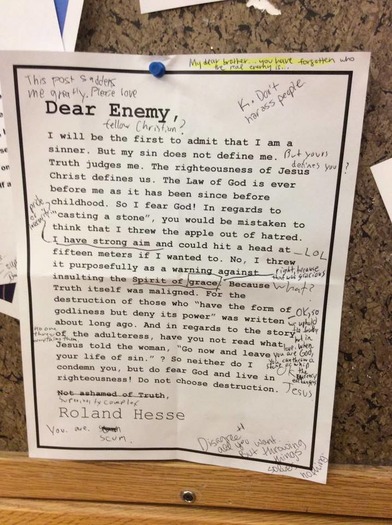 My dear brother... you have forgotten who
the real enemy is...
This post saddens
me greatly. Please love
K. Don't
harass people
Dear Enemy,
fellow Christian?
I will be the first to admit that I am a
sinner. But my sin does not define me.
But yours
defines you?
Truth judges me. The righteousness of Jesus
Christ defines us. The Law of God is ever
before me as it has been since before
childhood. So I fear God! In regards to
"casting a stone", you would be mistaken to
think that I threw the apple out of hatred.
pride
I have strong aim and could hit a head at
LOL
fifteen meters if I wanted to. No, I threw
it purposefully as a warning against
right because
insulting the Spirit of grace. Because
What?
Truth itself was maligned. For the
destruction of those who "have the form of
godliness but deny its power" was written
about long ago. And in regards to the story
of the adulteress, have you not read what
Jesus told the woman, "Go now and leave
your life of sin." ? So neither do I
condemn you, but do fear God and live in
righteousness! Do not choose destruction.
OK, so
you are God,
Jesus
Not ashamed of Truth,
Superiority Complex
Roland Hesse
You are
Scum.
Disagree
all you want
but throwing
things
solves
nothing.